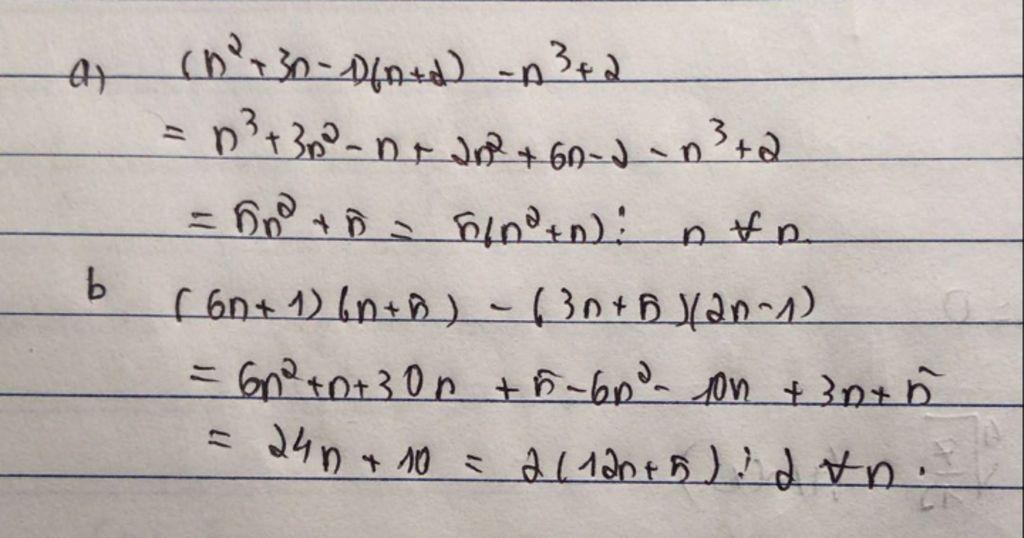 a) (n²+3n-1)(n+2) -n³+2
= n³+3n²-n+2n²+6n-2-n³+2
= 5n²+5 = 5(n²+n)⋮ n ∀ n.
b (6n+1)(n+5) - (3n+5)(2n-1)
= 6n²+n+30n +5-6n²-10n +3n+5
= 24n+10 = 2(12n+5)⋮2 ∀n.